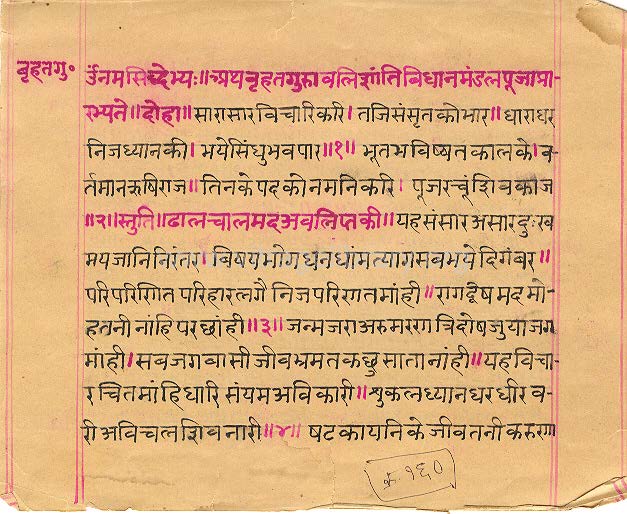 बृहतगु॰
ॐनमसिद्धेभ्यः॥अथबृहतगुरुावलिशांतिबिधानमंडलपूजाप्रा-
रभ्यते॥दोहा॥सारासारविचारिकरि।तजिसंसृतकोभार॥धाराधर
निजध्यानकी।भयेसिंधुभवपार॥१॥भूतभविष्यतकालके।व-
र्तमानऋषिराज॥तिनकेपदकोनमनिकरि।पूजरचूंशिवकाज
॥२॥स्तुति॥ढालचालमदअवलिप्तकी॥यहसंसारअसारदुःख
मयजानिनिरंतर।बिषयभोगधनधांमत्यागसबभयेदिगंबर॥
परिपरिणितपरिहारलगैनिजपरिणतमांही॥रागद्वेषमदमो-
हतनीनांहिपरछांही॥३॥जन्मजराअरुमरणत्रिदोषजुयाजग
मांही।सबजगवासीजीवभ्रमतकछुसातानांही॥यहविचा-
रचितमांहिधारिसंयमअविकारी॥शुकलध्यानधरधीरव-
रीअविचलशिवनारी॥४॥षटकायनिकेजीवतनीकरुणा
क्र.१६०